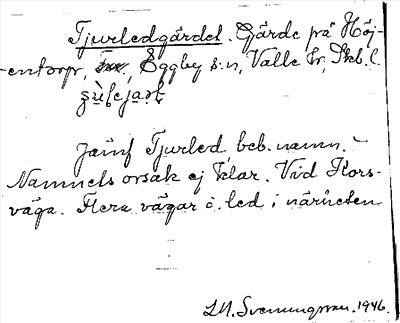 Tjurledgärdet. Gärde på Höj-
entorp, Eggby s:n, Valle hr, Skb. l.
Jämf Tjurled beb. namn. –
Namnets orsak ej klar. Vid Kors-
väga. Flera vägar o. led i närheten
L.M. Svenungsson. 1946.